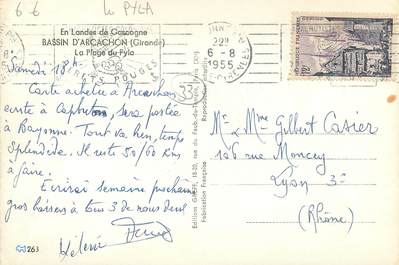 6 6
Le PYLA
En Landes de Gascogne
BASSIN D'ARCACHON (Gironde)
La Plage du Pyla
22H
6 - 8
1955
Samedi 18h
Carte achetée à Arcachon
écrite à Capbreton, sera postée
à Bayonne. Tout va bien, temps
splendide. Il reste 50/60 Kms
à faire.
Écrirai semaine prochaine
gros baisers à tous 3 de nous deux
Hélène
263
Reproduction interdite
Fabrication Française
Mr. & Mme Gilbert Casier
126 rue Moncey
Lyon 3e
(Rhône)